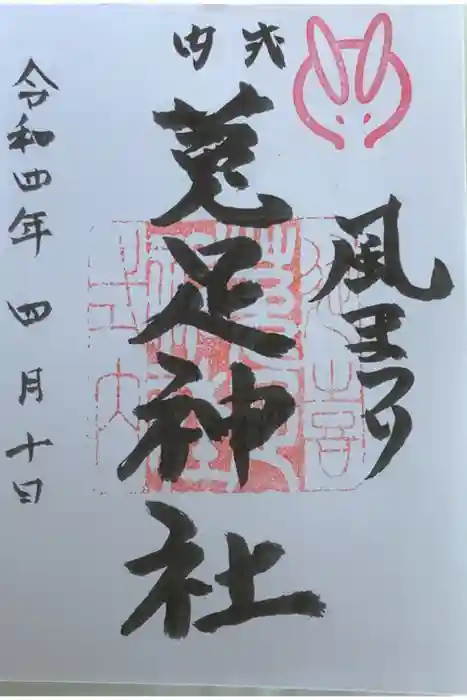 風まつり
式内
菟足神社
令和四年 四月十日